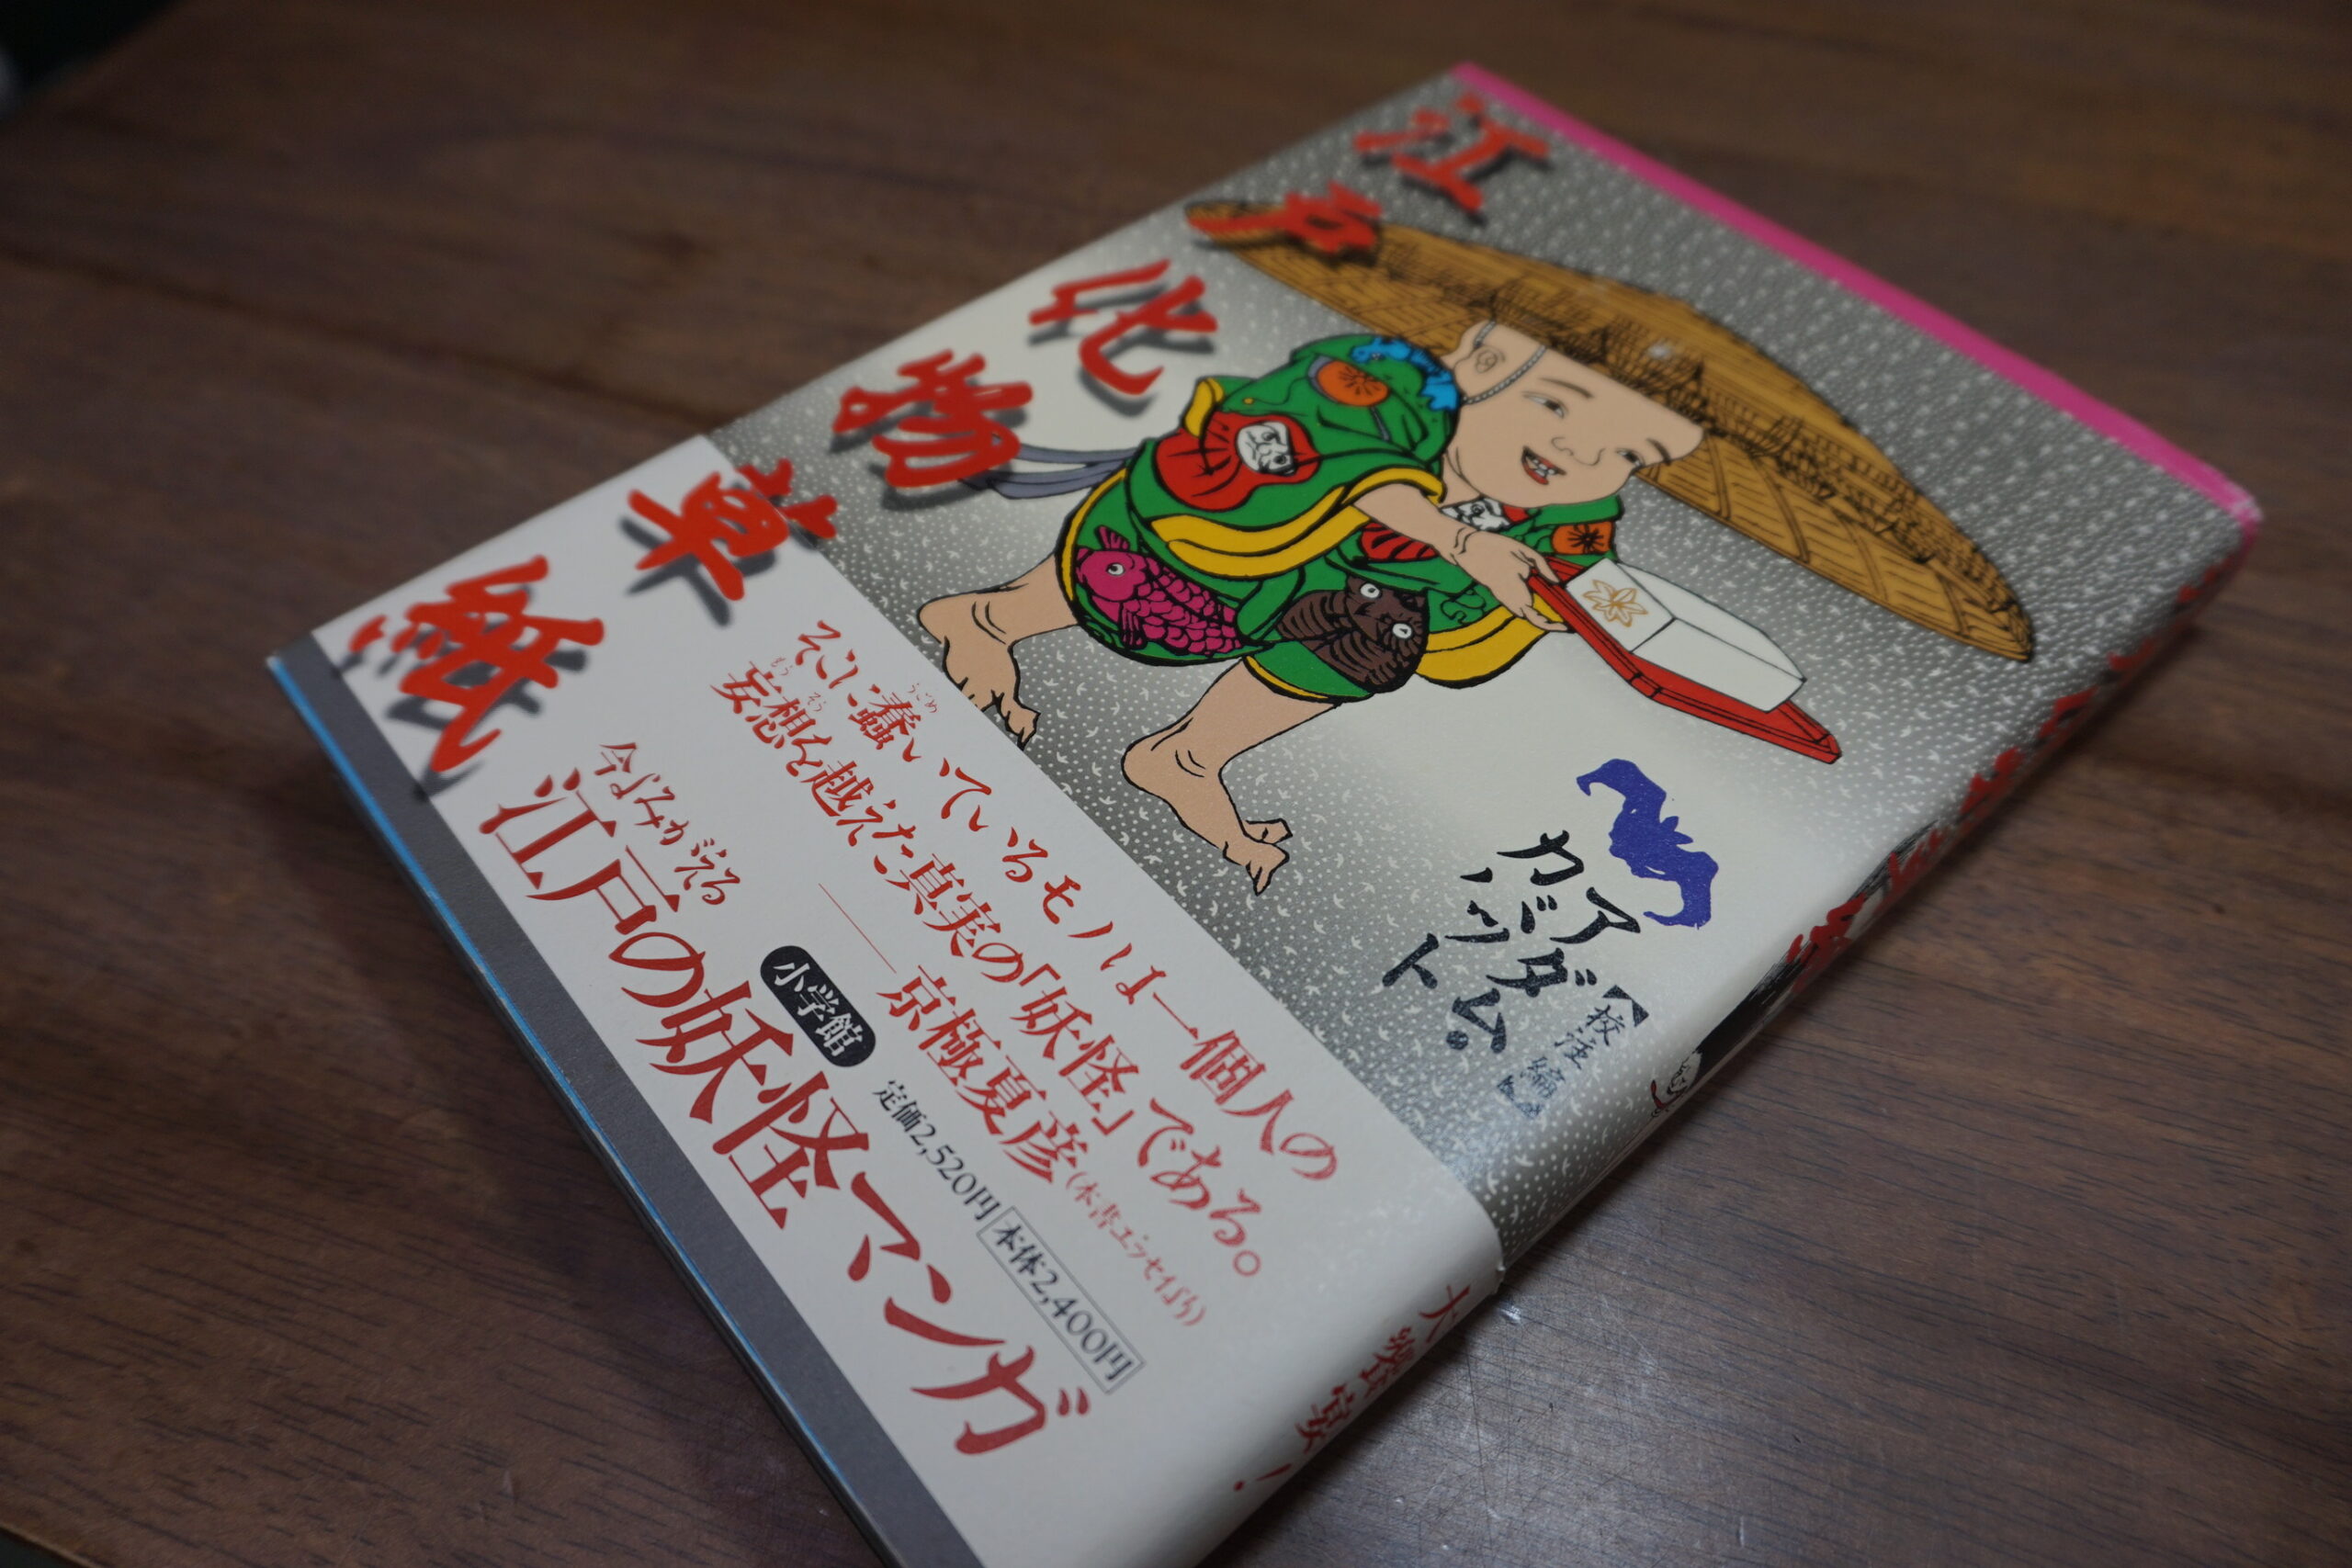 江戸化物草紙
アダム・カバット
【校注・編】
そこに蠢いているモノは一個人の
うごめ
妄想を越えた真実の「妖怪」である。
もうそう
——京極夏彦(本書エッセイより)
今よみがえる
江戸の妖怪マンガ
小学館
定価2,520円
本体2,400円
大饗宴!